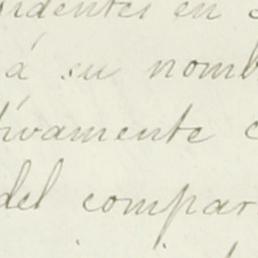 ndentes en
á su nomb
tivamente c
del compar